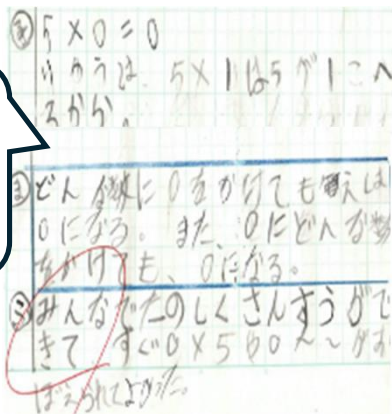 ㋲ 5×0=0
りゆうは、5×1は5が1こへ
るから。
㋮ どんな数に0をかけても答えは
0になる。また、0にどんな数
をかけても、0になる。
㋫ みんなでたのしくさんすうがで
きて すぐ0×5
ぼえられてよかった。